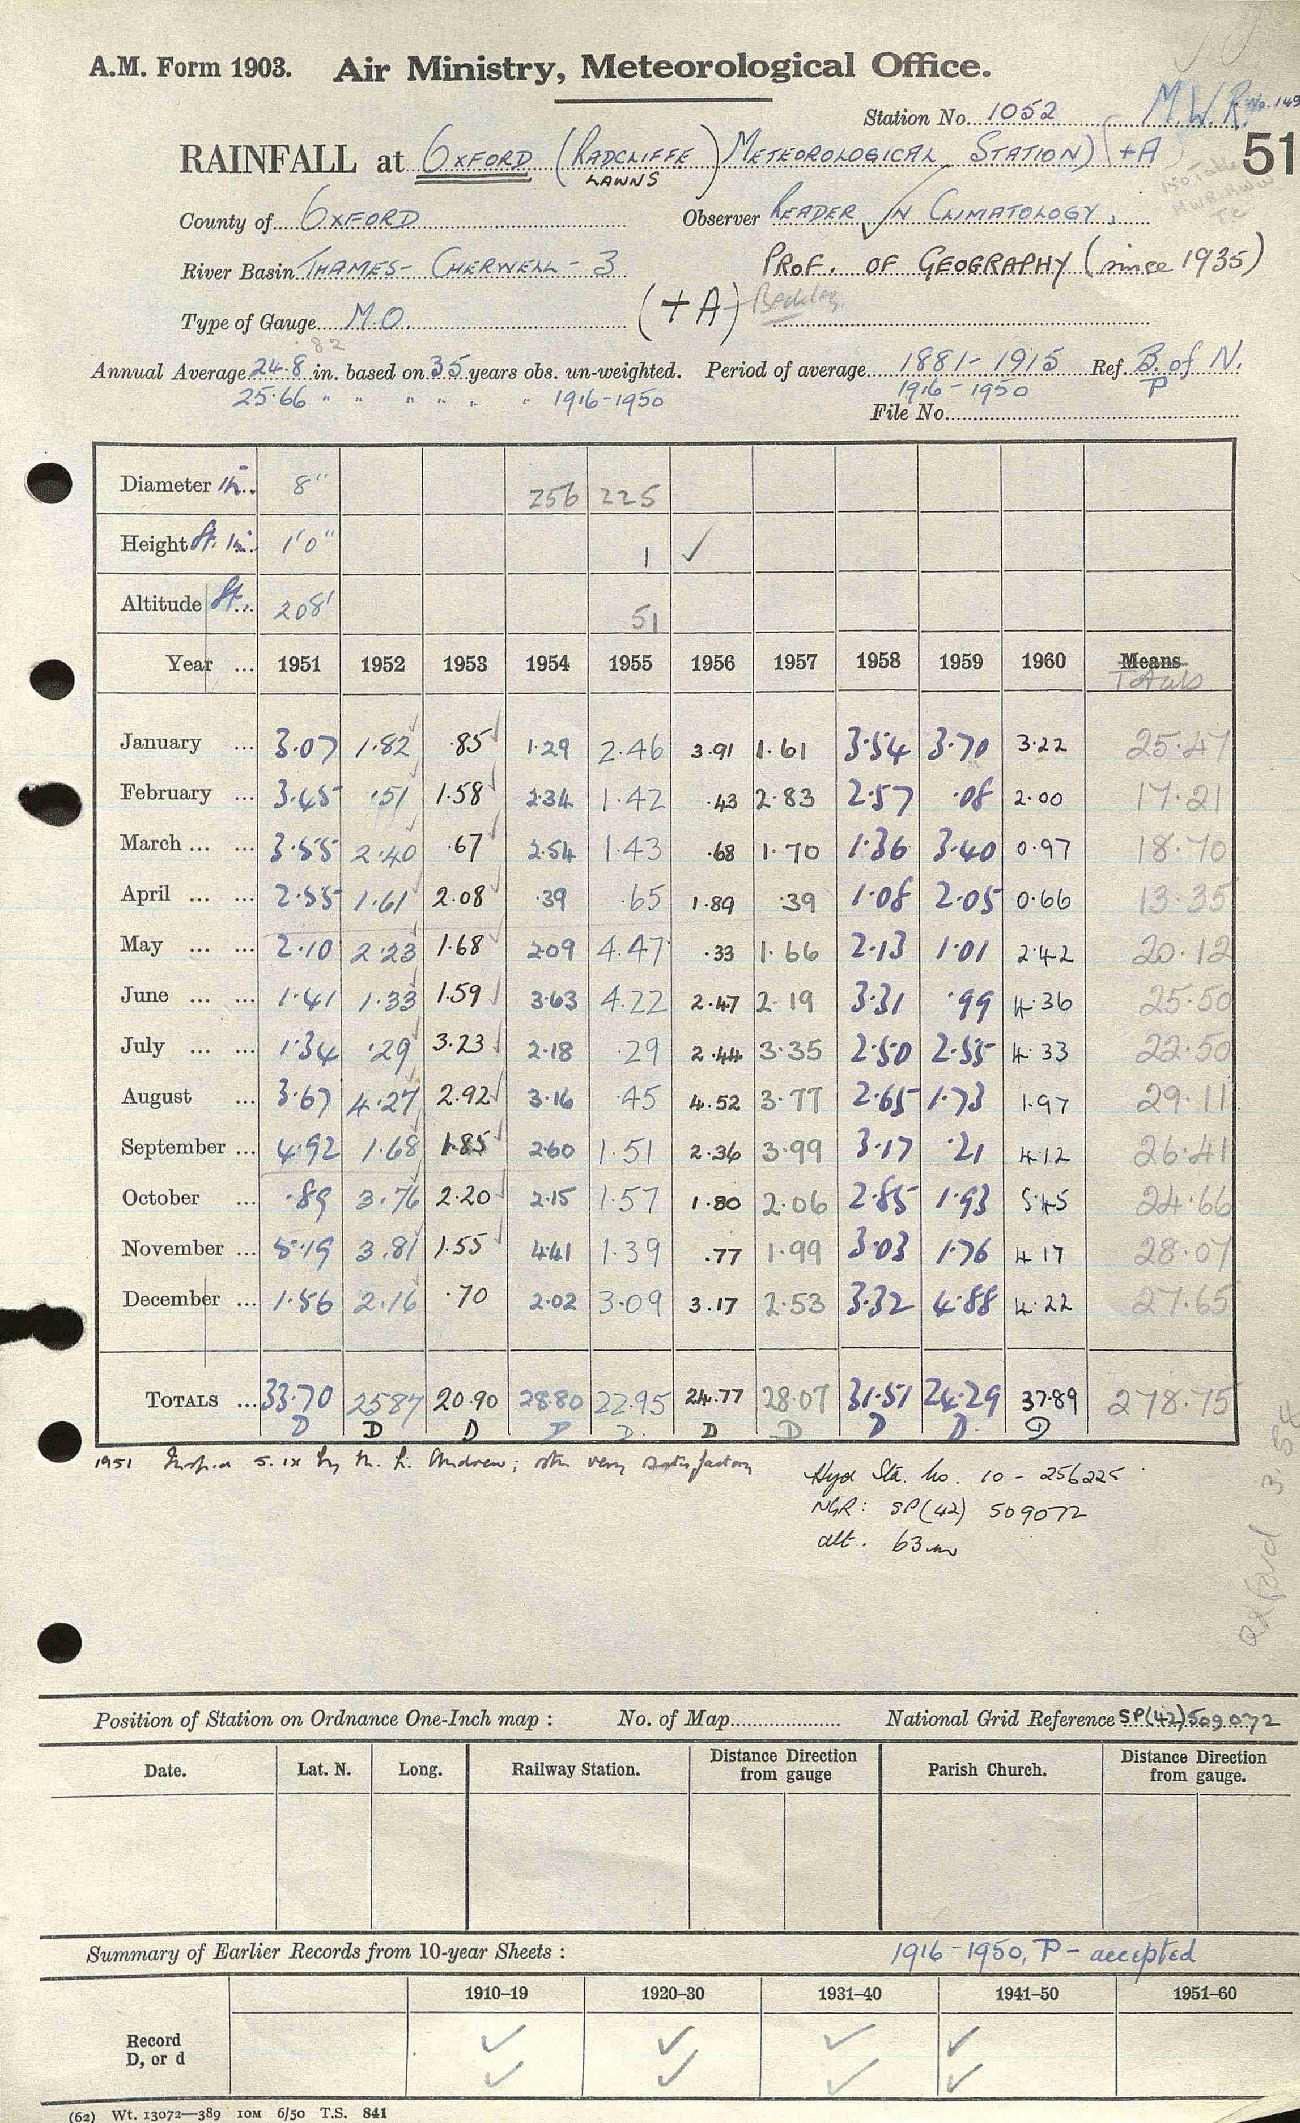 A.M. Form 1903. Air Ministry, Meteorological Office.
Station No. 1052 M.W.R. No. 149
RAINFALL at OXFORD (RADCLIFFE METEOROLOGICAL STATION) (+A 51
LAWNS
County of OXFORD Observer READER IN CLIMATOLOGY.
River Basin THAMES- CHERWELL - 3 PROF. OF GEOGRAPHY (since 1935)
Type of Gauge M.O. (+A)
82
Annual Average 24.8 in. based on 35 years obs. un-weighted. Period of average 1881-1915 Ref. B. of N.
25.66 " " " " " " 1916-1950 1916-1950 P
File No.
Diameter in. 8" 256 225
Height ft. in. 1'0" 1 ✓
Altitude ft. 208' 51
Year ... 1951 1952 1953 1954 1955 1956 1957 1958 1959 1960 Means
Totals
January ... 3.07 1.82 .85 1.29 2.46 3.91 1.61 3.54 3.70 3.22 25.47
February ... 3.45 .51 1.58 2.34 1.42 .43 2.83 2.57 .08 2.00 17.21
March ... ... 3.55 2.40 .67 2.54 1.43 .68 1.70 1.36 3.40 0.97 18.70
April ... ... 2.55 1.61 2.08 .39 .65 1.89 .39 1.08 2.05 0.66 13.35
May ... ... 2.10 2.23 1.68 2.09 4.47 .33 1.66 2.13 1.01 2.42 20.12
June ... ... 1.41 1.33 1.59 3.63 4.22 2.47 2.19 3.31 .99 4.36 25.50
July ... ... 1.34 .29 3.23 2.18 .29 2.44 3.35 2.50 2.55 4.33 22.50
August ... 3.67 4.27 2.92 3.16 .45 4.52 3.77 2.65 1.73 1.97 29.11
September ... 4.92 1.68 1.85 2.60 1.51 2.36 3.99 3.17 .21 4.12 26.41
October ... .89 3.76 2.20 2.15 1.57 1.80 2.06 2.85 1.93 5.45 24.66
November ... 5.19 3.81 1.55 4.41 1.39 .77 1.99 3.03 1.76 4.17 28.07
December ... 1.56 2.16 .70 2.02 3.09 3.17 2.53 3.32 4.88 4.22 27.65
TOTALS ... 33.70 25.87 20.90 28.80 22.95 24.77 28.07 31.51 24.29 37.89 278.75
D D D D D. D D D D. D
1951 Insp.d 5.ix by N. L. Andrew; site very satisfactory
Hyd Sta. No. 10 - 256225
NGR: SP(42) 509072
alt. 63m
Oxford 3.54
Position of Station on Ordnance One-Inch map : No. of Map National Grid Reference SP(42)509072
Date. Lat. N. Long. Railway Station. Distance Direction from gauge Parish Church. Distance Direction from gauge.
Summary of Earlier Records from 10-year Sheets : 1916-1950, P - accepted
1910-19 1920-30 1931-40 1941-50 1951-60
Record ✓ ✓ ✓ ✓
D, or d ✓ ✓ ✓ ✓
(62) Wt. 13072—389 10M 6/50 T.S. 841